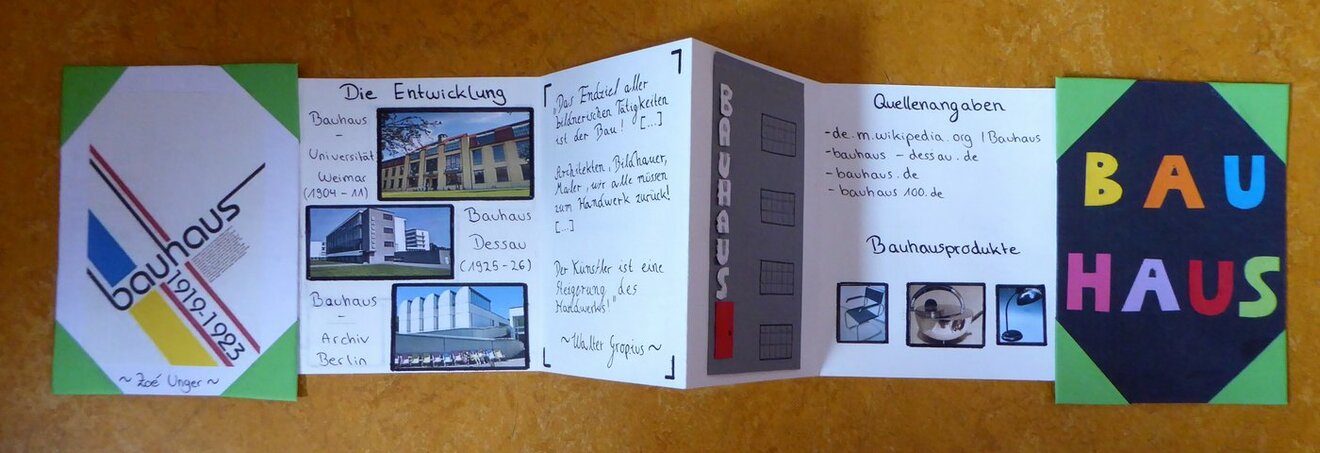 bauhaus
1919-1923
~ Zoé Unger ~
Die Entwicklung
Bauhaus
-
Universität
Weimar
(1904 - 11)
Bauhaus
Dessau
(1925 - 26)
Bauhaus
-
Archiv
Berlin
„Das Endziel aller
bildnerischen Tätigkeiten
ist der Bau! [...]
Architekten, Bildhauer,
Maler, wir alle müssen
zum Handwerk zurück!
[...]
Der Künstler ist eine
Steigerung des
Handwerks!"
~ Walter Gropius ~
BAUHAUS
Quellenangaben
- de.m.wikipedia.org / Bauhaus
- bauhaus - dessau.de
- bauhaus.de
- bauhaus 100.de
Bauhausprodukte
BAU
HAUS